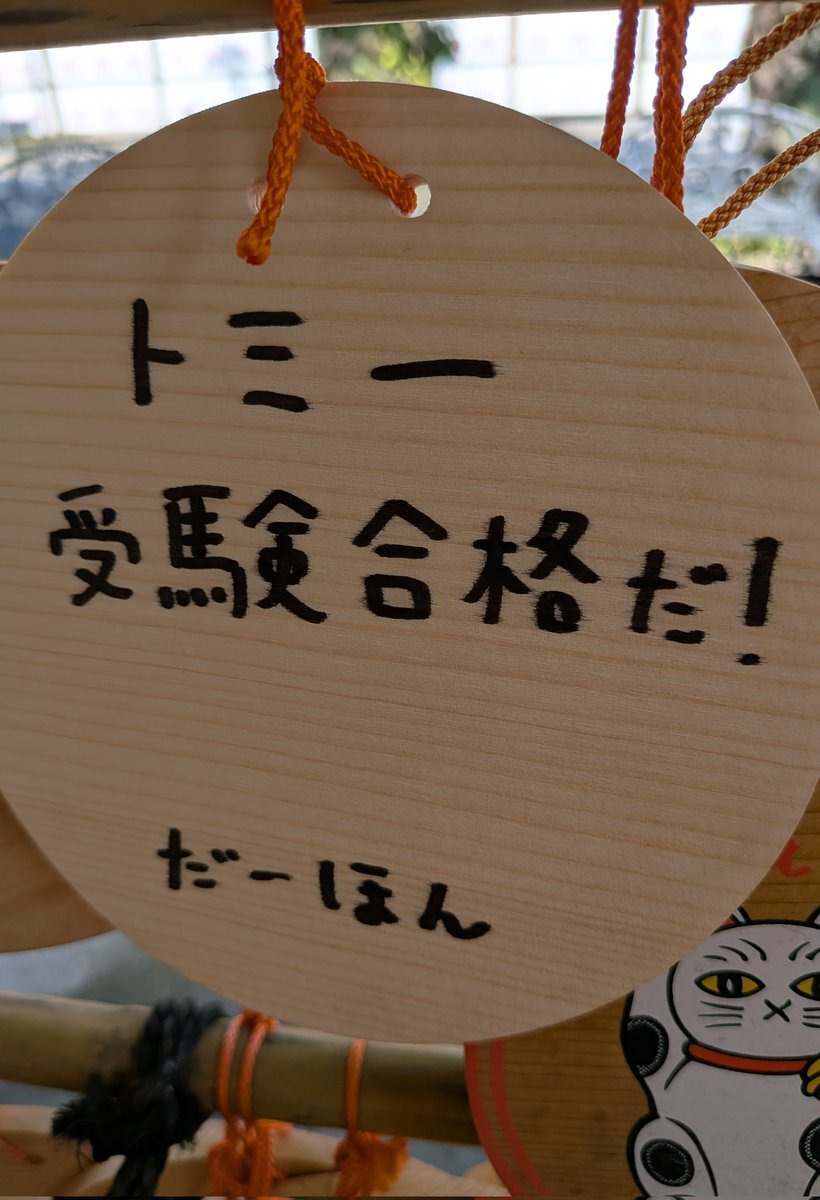 トミー
受験合格だ!
だーほん